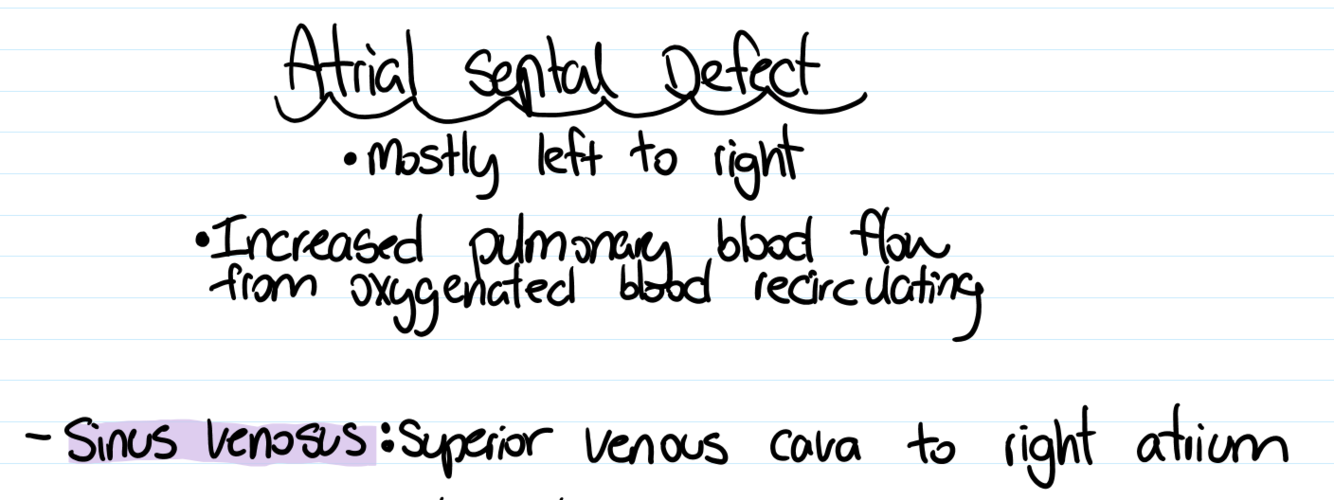 Atrial Septal Defect
• Mostly left to right
• Increased pulmonary blood flow
from oxygenated blood recirculating
- Sinus venosus: Superior venous cava to right atrium